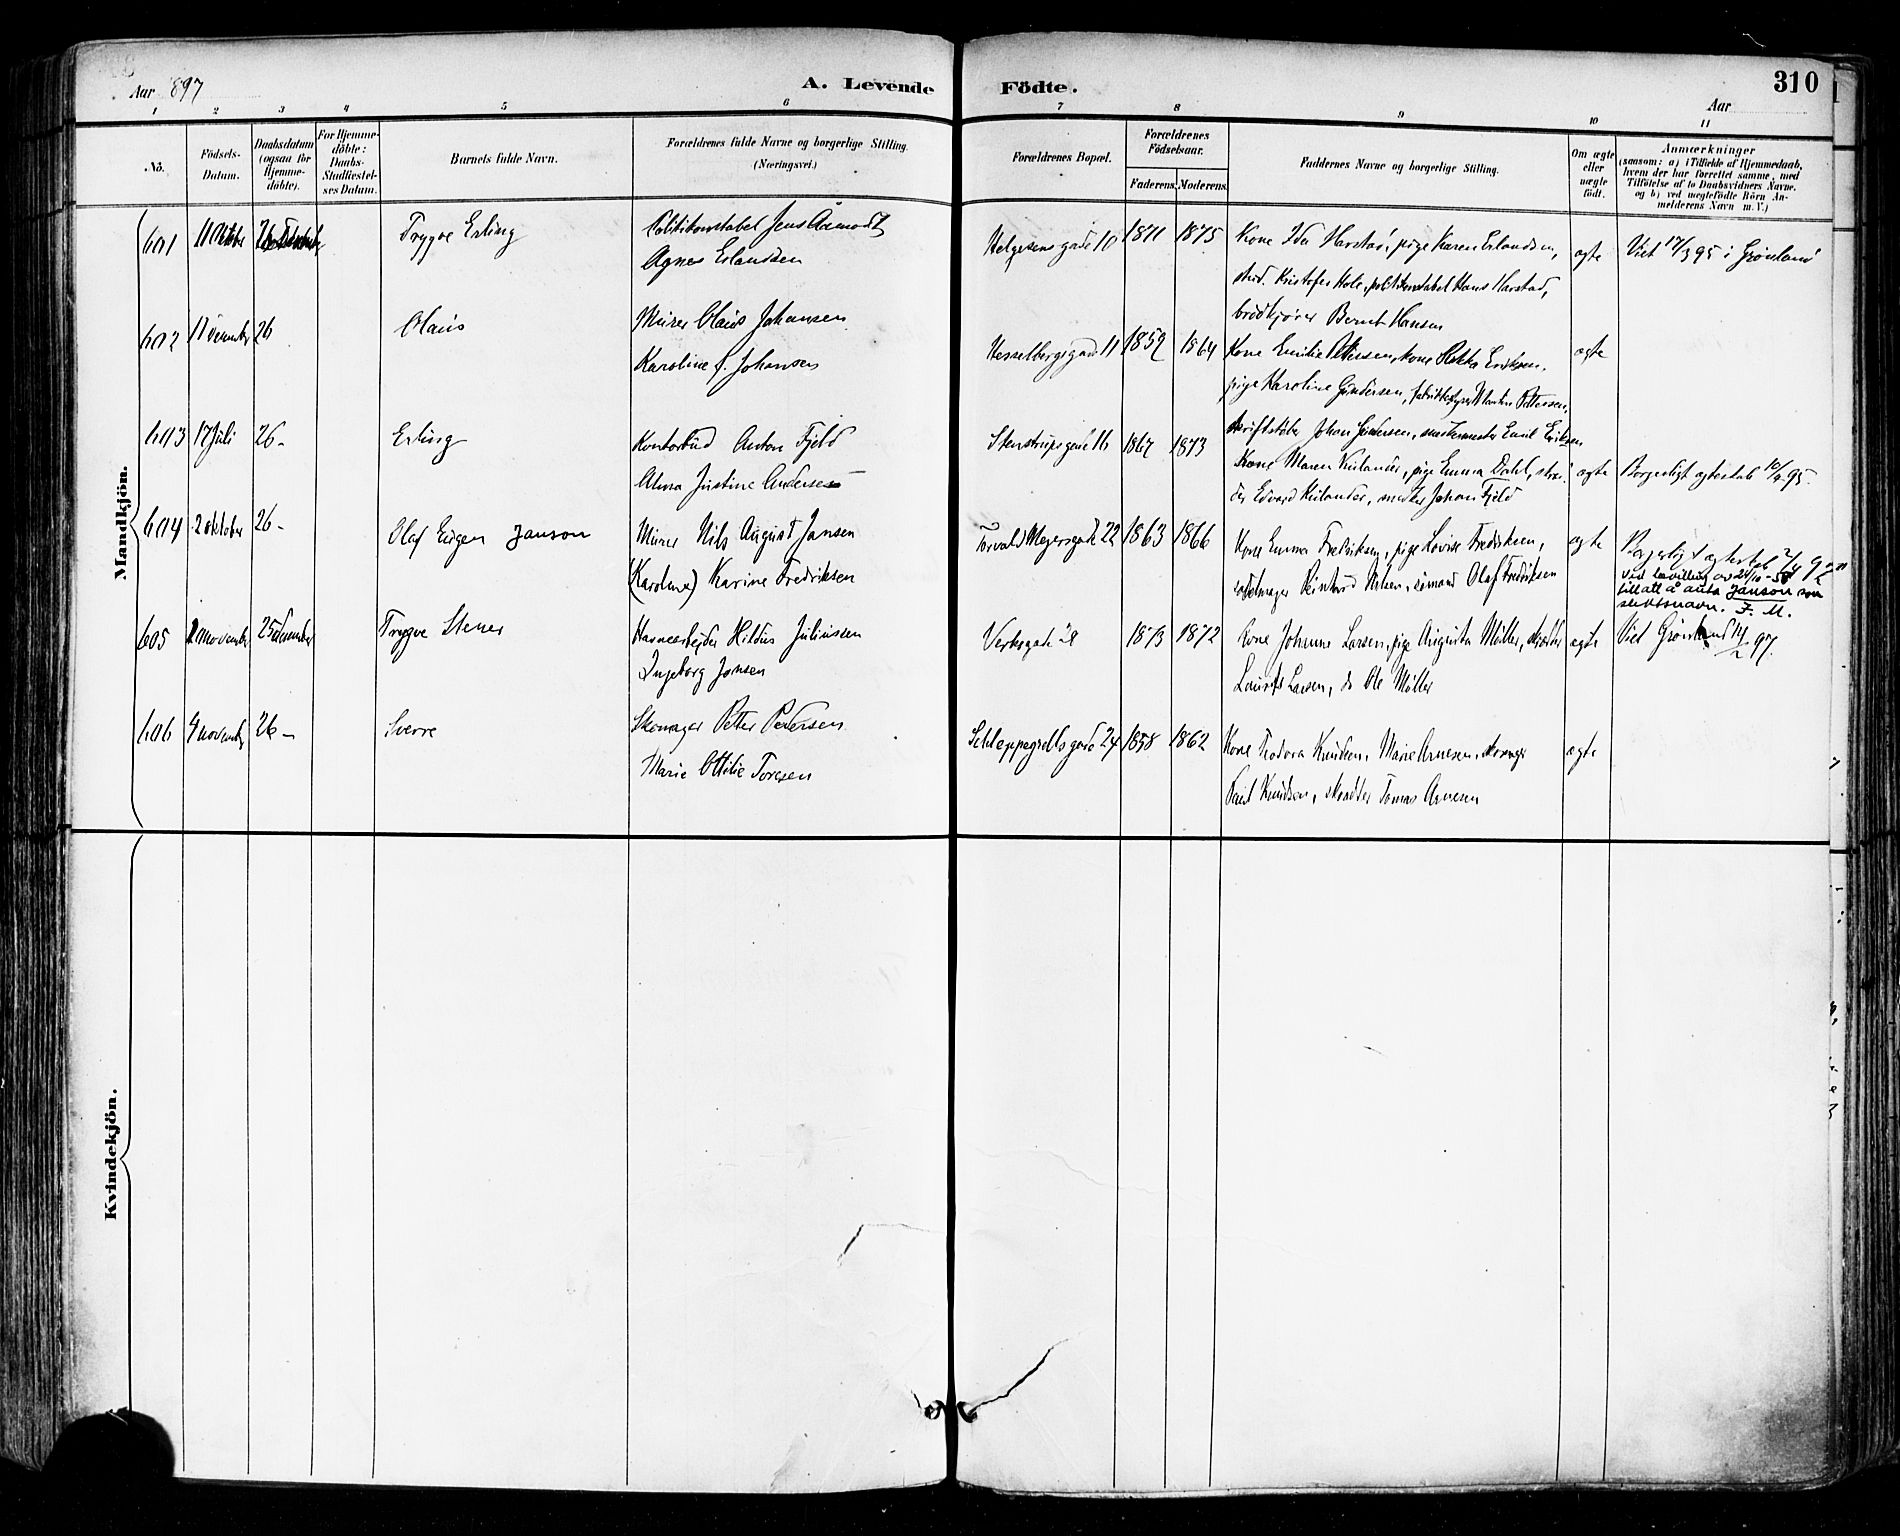 Aar 897
A. Levende
Födte.
310
Aar
1 2 3 4 5 6 7 8 9 10 11
No.
Födsels-Datum.
Daabsdatum (ogsaa för Hjemme-döbte).
For Hjemme-döbte: Daabs-Stadfæstel-ses Datum.
Barnets fulde Navn.
Forældrenes fulde Navne og borgerlige Stilling.
(Næringsvei.)
Forældrenes Bopæl.
Forældrenes Födselsaar.
Faderens. Moderens.
Faddernes Navne og borgerlige Stilling.
Om ægte eller uægte födt.
Anmærkninger
(saasom: a) i Tilfælde af Hjemmedaab,
hvem der har forrettet samme, med
Tilföielse af to Daabsvidners Navne,
og b) ved uægtefödte Börn An-
melderens Navn m. V.)
Mandkjön.
601 11 Oktober Trygve Erling Politikonstabel Jens Aamodt Helgesens gade 10 1871 1875 Kone Ida Harstad, pige Karen Erlandsen, ægte Viet 17/3 95 i Grønland
Agnes Erlandsen stud. Kristofer Hole, politikonstabel Hans Harstad,
brødkjører Bernt Hansen
602 26 Olaus Murer Olaus Johansen Hesselbergsgade 11 1859 1864 Kone Emilie Pettersen, kone Eriksen, ægte
Karoline f. Johansen pige Karoline Gundersen, Pettersen,
603 17 Juli 26- Erling Kontorbud Anton Fjeld Stenstrupsgade 16 1867 1873 skriftstøber Johan Gundersen, Emil Eriksen
Alma Justine Andersen Kone Maren Kiilander, pige Emma Dahl, skræd- ægte Borgerligt ægteskab 10/9 95.
der Edvard Kiilander, smed Johan Fjeld
604 2 oktober 26- Olaf Eugen Janson Murer Nils August Jansen Torvald Meyersgade 22 1863 1866 Kone Emma Fredriksen, pige Lovise Fredriksen, ægte Borgerligt ægteskab
(Karoline) Karine Fredriksen Nilsen, sømand Olaf Fredriksen
Ved bevilling av 24/10-58
tillatt å anta Janson som
slektsnavn. F. M.
605 november 25 december Trygve Stener Havnearbejder Hildus Juliussen Verksgade 28 1873 1872 Kone Johanne Larsen, pige Augusta Müller, skrædder ægte Viet Grønland 14/2 97.
Ingeborg Jonsen Laurits Larsen, do Ole Müller
606 4 november 26- Sverre Skomager Petter Pedersen Schleppegrellsgade 24 1858 1862 Kone Teodora Knudsen, Marie Arnesen, skomager ægte
Marie Otilie Toresen Paul Knudsen, skrædder Tomas Arnesen
Kvindekjön.